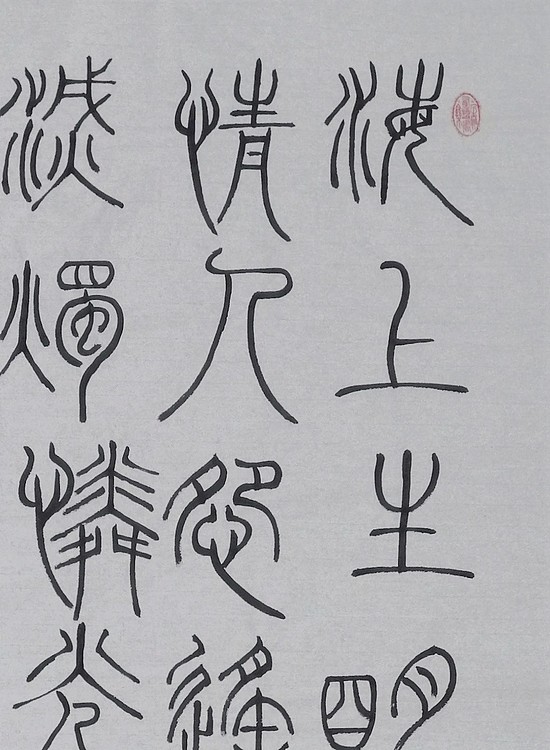 海上生明
情人怨遙
滅燭憐光